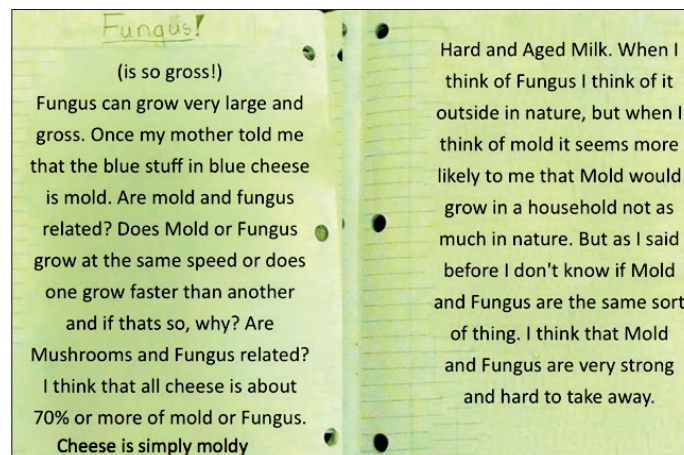 Fungus!
(is so gross!)
Fungus can grow very large and
gross. Once my mother told me
that the blue stuff in blue cheese
is mold. Are mold and fungus
related? Does Mold or Fungus
grow at the same speed or does
one grow faster than another
and if thats so, why? Are
Mushrooms and Fungus related?
I think that all cheese is about
70% or more of mold or Fungus.
Cheese is simply moldy
Hard and Aged Milk. When I
think of Fungus I think of it
outside in nature, but when I
think of mold it seems more
likely to me that Mold would
grow in a household not as
much in nature. But as I said
before I don't know if Mold
and Fungus are the same sort
of thing. I think that Mold
and Fungus are very strong
and hard to take away.